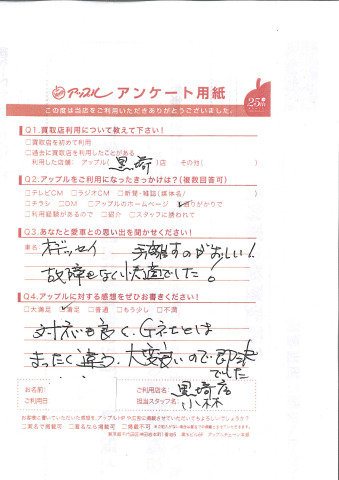 アップル アンケート用紙
25th
この度は当店をご利用いただきありがとうございました。
Q1.買取店利用について教えて下さい!
□買取店を初めて利用
□過去に買取店を利用したことがある
利用した店舗: アップル(黒埼)店 その他( )
Q2.アップルをご利用になったきっかけは?(複数回答可)
□テレビCM □ラジオCM □新聞・雑誌(媒体名/ )
□チラシ □DM □アップルのホームページ ☑通りがかりで
□利用経験があるので □紹介 □スタッフに誘われて
Q3.あなたと愛車との思い出を聞かせください!
車名: オデッセイ 手離すのがおしい!
故障もなく快適でした。
Q4.アップルに対する感想をぜひお書きください!
□大満足 ☑満足 □普通 □もう少し □不満
対応も良く、Gネットとは
まったく違う。大変良いので即決
でした
お名前: ご利用店名: 黒埼店
ご利用日 担当スタッフ名: 小林
お客様に書いていただいた感想を、アップルHPや広告に掲載させていただいてもよろしいでしょうか?
□実名で掲載可 □匿名なら掲載可 □掲載不可